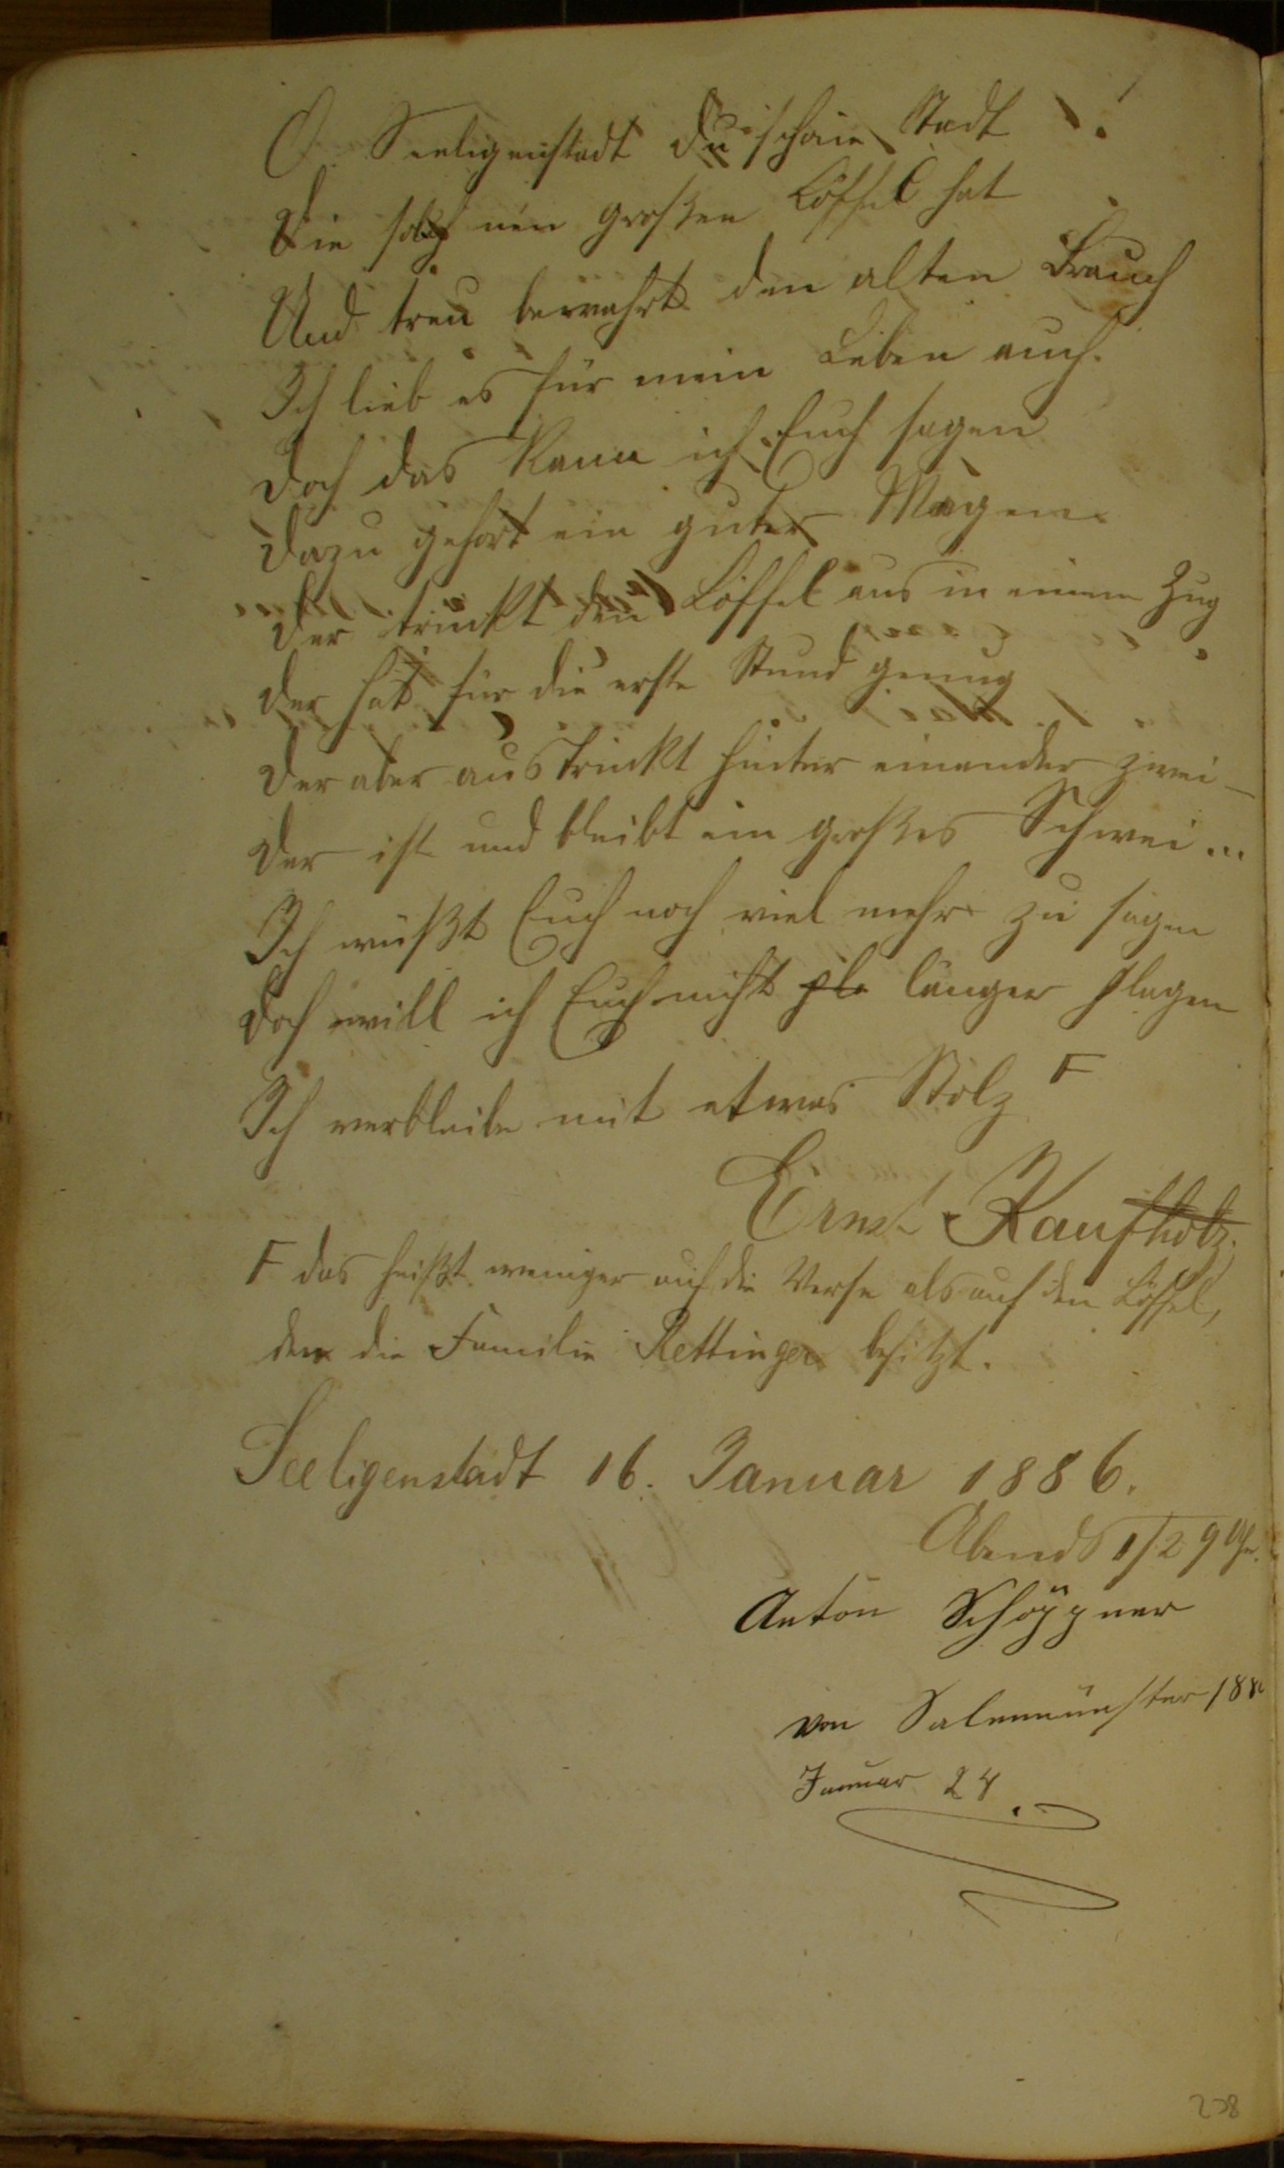 O Seeligenstadt du schöne Stadt
Die solch nen großen Löffel hat
Und treu bewahrt den alten Brauch
Ich lieb es für mein Leben auch.
Doch das kann ich Euch sagen
Dazu gehört ein guter Magen
Der trinkt den Löffel aus in einem Zug
Der hat für die erste Stund genug
Der aber austrinkt hinter einander zwei –
Der ist und bleibt ein großes Schwei...
Ich wüßt Euch noch viel mehr zu sagen
Doch will ich Euch nicht pla länger plagen
Ich verbleibe mit etwas Stolz F
Ernst Kaufholz.
F das heißt weniger auf die Verse als auf den Löffel,
den die Familie Rettinger besitzt.
Seeligenstadt 16. Januar 1886.
Abends 1/2 9 Uhr.
Anton Schöppner
von Salmünster 188
Januar 24.
238